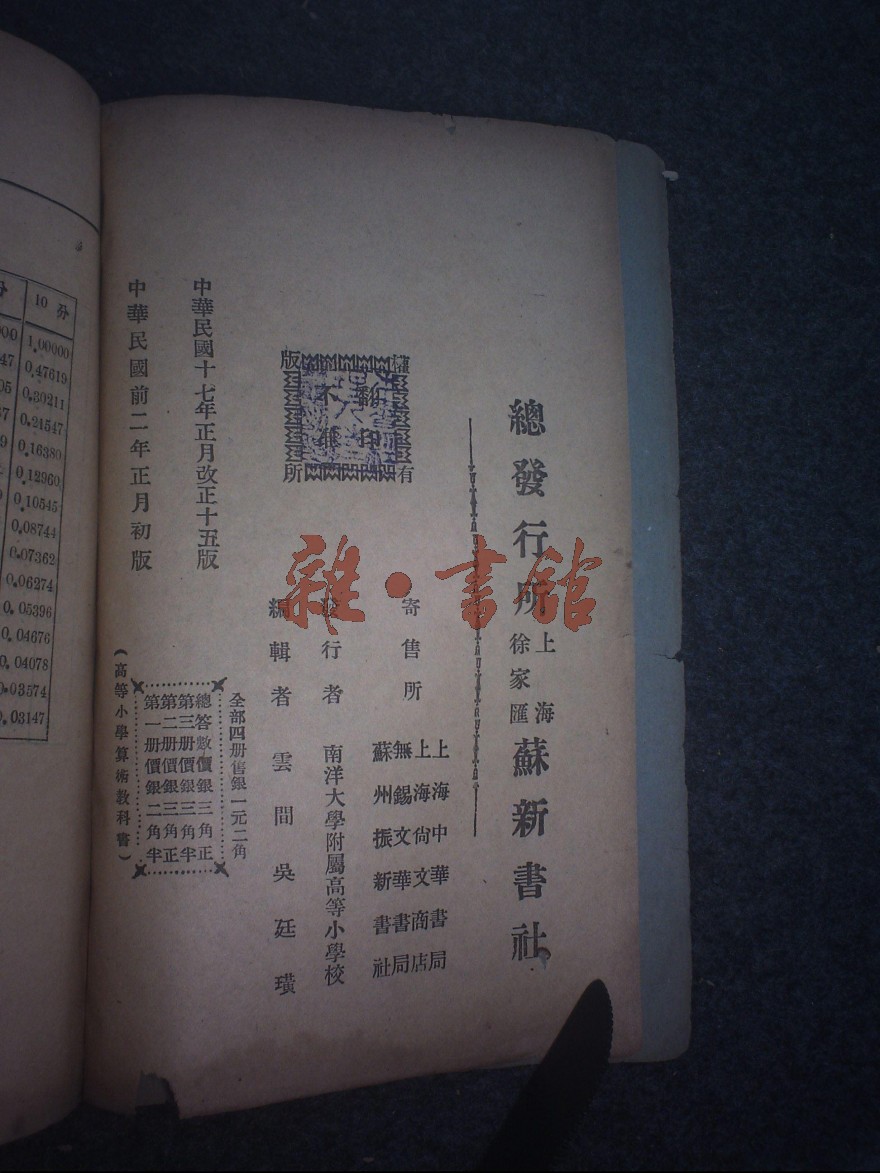 中華民國前二年正月初版
中華民國十七年正月改正十五版
版權所有
不許翻印
(高等小學算術教科書)
第一册價銀二角半
第二册價銀三角正
第三册價銀三角半
總答數價銀三角正
全部四册售銀一元二角
編輯者 雲間吳廷璜
發行者 南洋大學附屬高等小學校
寄售所
上海中華書局
上海尙文商店
無錫文華書局
蘇州振新書社
總發行所 上海徐家匯 蘇新書社
雜·書館
分
10 分
1.00000
0.47619
0.30211
0.21547
0.16380
0.12960
0.10545
0.08744
0.07362
0.06274
0.05396
0.04676
0.04078
0.03574
0.03147